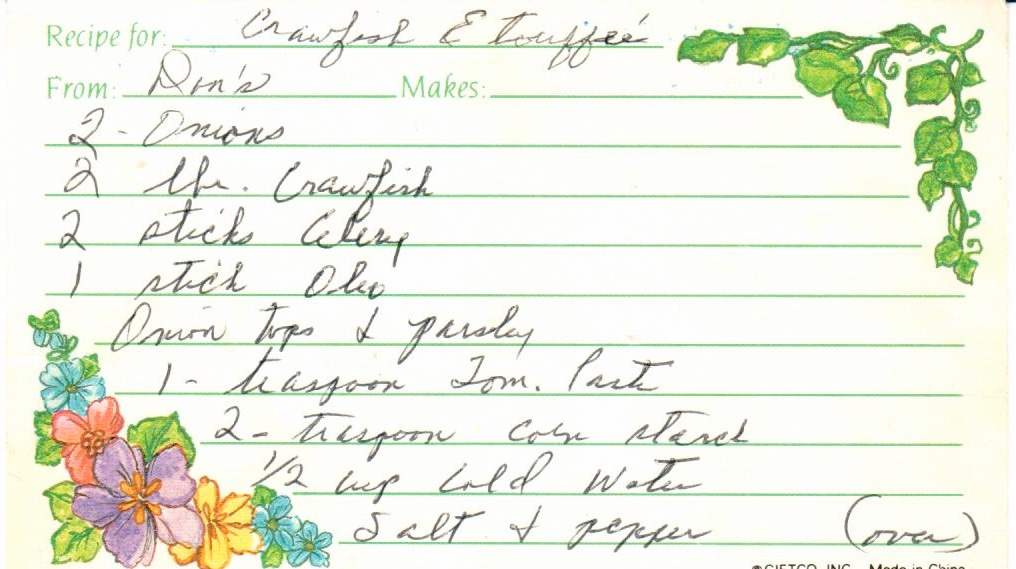 Recipe for: Crawfish Etouffeé
From: Don's Makes:
2 - Onions
2 lbs. Crawfish
2 sticks Celery
1 stick Oleo
Onion tops & parsley
1 - teaspoon Tom. Paste
2 - teaspoon corn starch
1/2 cup Cold Water
Salt & pepper (over)
©GIFTCO, INC. Made in China